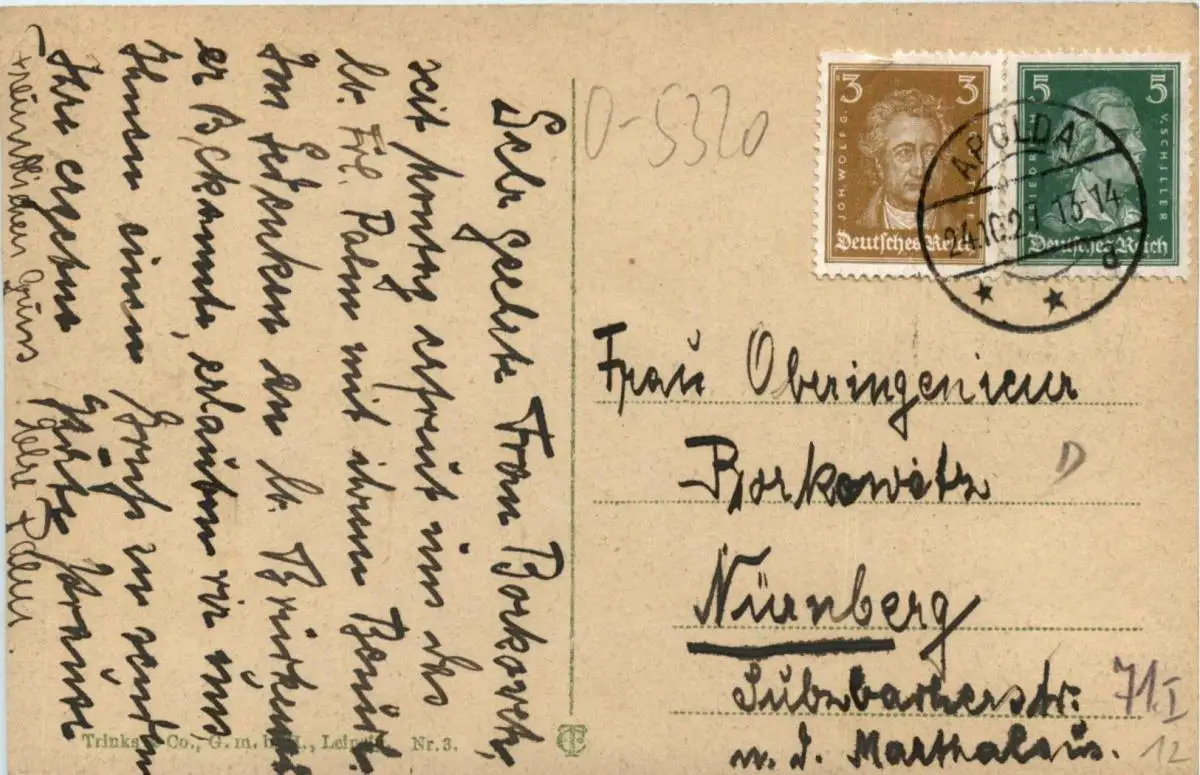 Sehr geehrte Frau Borkowitz,
seit honteg erfreut uns das
lb. Frl. Palm mit ihrem Besuch.
Im Gedenken an lb.
er Bekannte, erlauben wir uns,
Ihnen einen Gruß zu senden
Ihre ergebene
freundlichen Gruss
O-5320
3 3
JOH. WOLFG.
Deutsches Reich
5 5
FRIEDR.
V. SCHILLER
Deutsches Reich
APOLDA
24.10.2 13-14
d
Frau Oberingenieur
Borkowitz
D
Nürnberg
Sulzbacherstr. 71.I
w. d. Marthahaus.
12
Trinks & Co., G. m. b. H., Leipzig. Nr. 3.